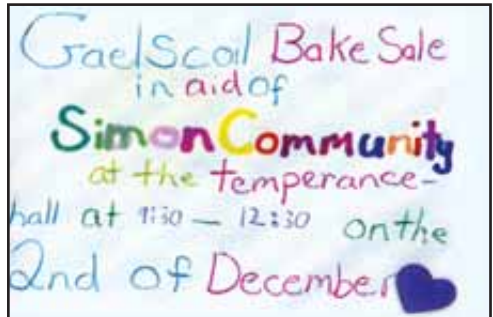 Gaelscoil Bake Sale
in aid of
Simon Community
at the temperance-
hall at 9:30 — 12:30 on the
2nd of December